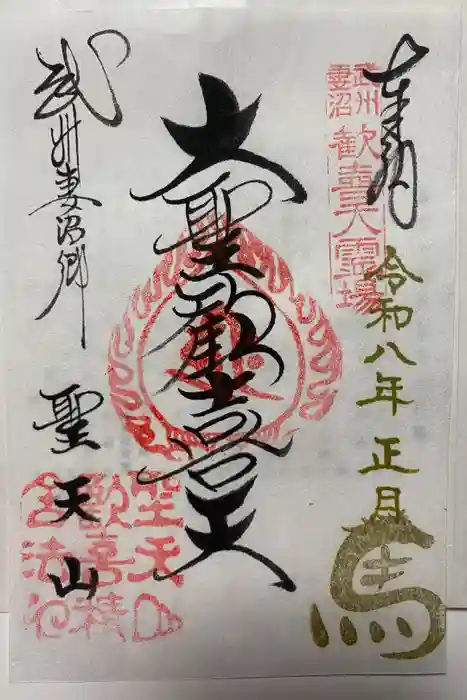 奉拝
武州
妻沼
歓喜天霊場
令和八年正月
馬
大聖歓喜天
武州妻沼郷
聖天山
聖天山
歓喜